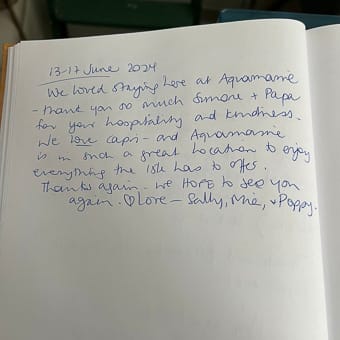 13-17 June 2024
We loved staying here at Aquamarine
- thank you so much Simone + Papa
for your hospitality and kindness.
We love capri - and Aquamarine
is in such a great location to enjoy
everything the isle has to offer.
Thanks again - we HOPE to see you
again. ♡ Love - Sally, Mia, + Poppy.